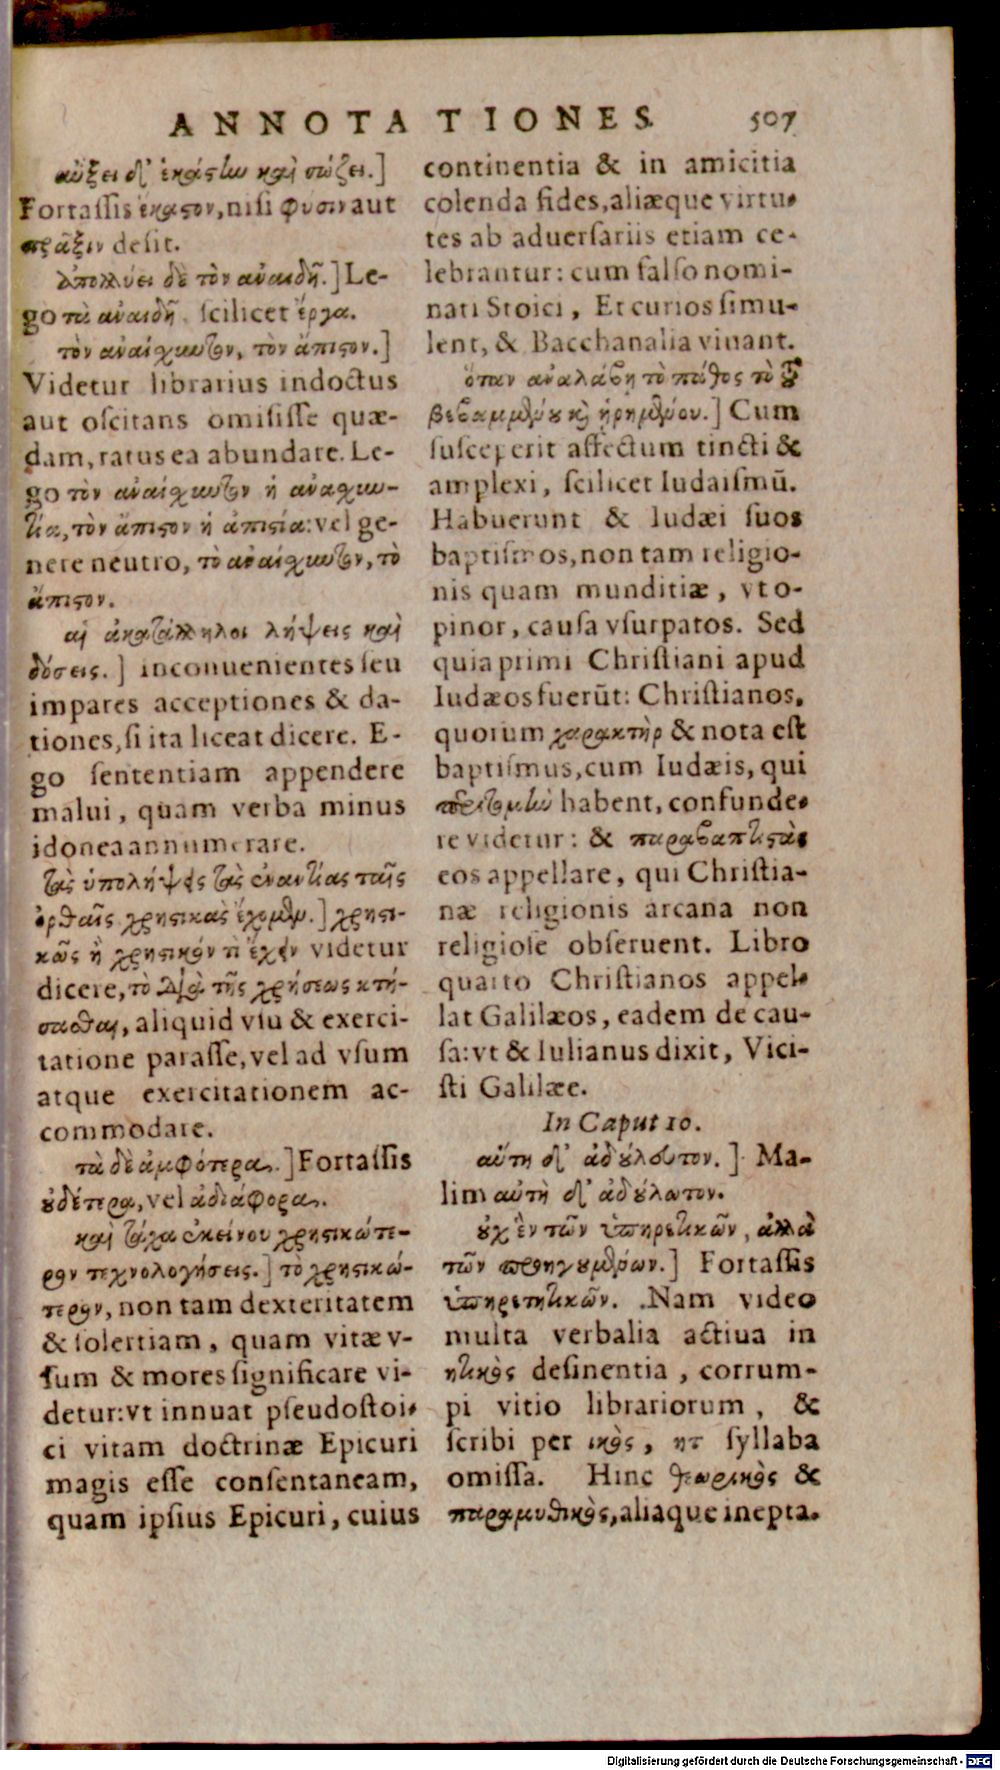 ANNOTATIONES. 507
αὔξει δ᾽ ἑκάστω καὶ σώζει.]
Fortaſſis ἕκαστον, niſi φύσιν aut
πρᾶξιν deſit.
Ἀπολλύει δὲ τὸν ἀναιδῆ.] Le-
go τὰ ἀναιδῆ. ſcilicet ἔργα.
τὸν ἀναίσχωτον, τὸν ἄπιστον.]
Videtur librarius indoctus
aut oſcitans omiſiſſe quæ-
dam, ratus ea abundare. Le-
go τὸν ἀναίσχωτον ἢ ἀναισχυν-
τία, τὸν ἄπιστον ἢ ἀπιστία: vel ge-
nere neutro, τὸ ἀναίσχωτον, τὸ
ἄπιστον.
αἱ ἀκατάλληλοι λήψεις καὶ
δόσεις.] inconuenientes ſeu
impares acceptiones & da-
tiones, ſi ita liceat dicere. E-
go ſententiam appendere
malui, quam verba minus
idonea annumerare.
τὰς ὑπολήψεις τὰς ἐναντίας ταῖς
ὀρθαῖς χρηστικὰς ἔχομεν.] χρηστι-
κῶς ἢ χρηστικόν τι ἔχειν videtur
dicere, τὸ διὰ τῆς χρήσεως κτή-
σασθαι, aliquid vſu & exerci-
tatione paraſſe, vel ad vſum
atque exercitationem ac-
commodare.
τὰ δὲ ἀμφότερα.] Fortaſſis
οὐδέτερα, vel ἀδιάφορα.
καὶ τάχα ἐκείνου χρηστικώτε-
ρον τεχνολογήσεις.] τὸ χρηστικώ-
τερον, non tam dexteritatem
& ſolertiam, quam vitæ v-
ſum & mores ſignificare vi-
detur: vt innuat pſeudoſtoi-
ci vitam doctrinæ Epicuri
magis eſſe conſentaneam,
quam ipſius Epicuri, cuius
continentia & in amicitia
colenda fides, aliæque virtu-
tes ab aduerſariis etiam ce-
lebrantur: cum falſo nomi-
nati Stoici, Et curios ſimu-
lent, & Bacchanalia viuant.
ὅταν ἀναλάβῃ τὸ πάθος τὸ τοῦ
βεβαμμένου καὶ ᾑρημένου.] Cum
ſuſceperit affectum tincti &
amplexi, ſcilicet Iudaiſmū.
Habuerunt & Iudæi ſuos
baptiſmos, non tam religio-
nis quam munditiæ, vt o-
pinor, cauſa vſurpatos. Sed
quia primi Chriſtiani apud
Iudæos fuerūt: Chriſtianos,
quorum χαρακτὴρ & nota eſt
baptiſmus, cum Iudæis, qui
περιτομὼ habent, confunde-
re videtur: & παραβαπτιστὰς
eos appellare, qui Chriſtia-
næ religionis arcana non
religioſe obſeruent. Libro
quarto Chriſtianos appel-
lat Galilæos, eadem de cau-
ſa: vt & Iulianus dixit, Vici-
ſti Galilæe.
In Caput 10.
αὕτη δ᾽ ἀδούλευτον.] Ma-
lim αὐτὴ δ᾽ ἀδούλωτον.
οὐχ ἓν τῶν ὑπηρετικῶν, ἀλλὰ
τῶν προηγουμένων.] Fortaſſis
ὑπηρετητικῶν. Nam video
multa verbalia actiua in
ητικὸς deſinentia, corrum-
pi vitio librariorum, &
ſcribi per ικὸς, ητ ſyllaba
omiſſa. Hinc θεωρικὸς &
παραμυθικὸς, aliaque inepta.
Digitalisierung gefördert durch die Deutsche Forschungsgemeinschaft - DFG